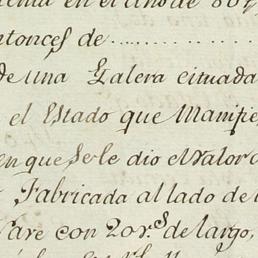 en el año de 807
entonces de ...............
de una Galera cituada
el Estado que Manifie
en que se le dio el valor d
Fabricada al lado de l
Vare con 20 r.s de largo,